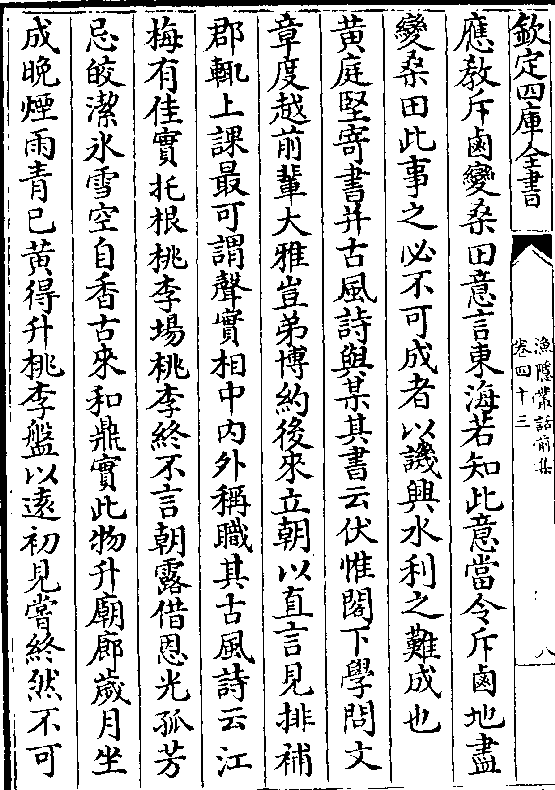 欽定四庫全書
漁隱叢話前集
卷四十三
八
應教斥鹵變桑田意言東海若知此意當令斥鹵地盡
變桑田此事之必不可成者以譏興水利之難成也
黄庭堅寄書并古風詩與某其書云伏惟閣下學問文
章度越前輩大雅豈弟博約後來立朝以直言見排補
郡輒上課最可謂聲實相中内外稱職其古風詩云江
梅有佳實托根桃李場桃李終不言朝露借恩光孤芳
忌皎潔氷雪空自香古來和鼎實此物升廟廊歲月坐
成晚煙雨青已黄得升桃李盤以遠初見嘗終然不可